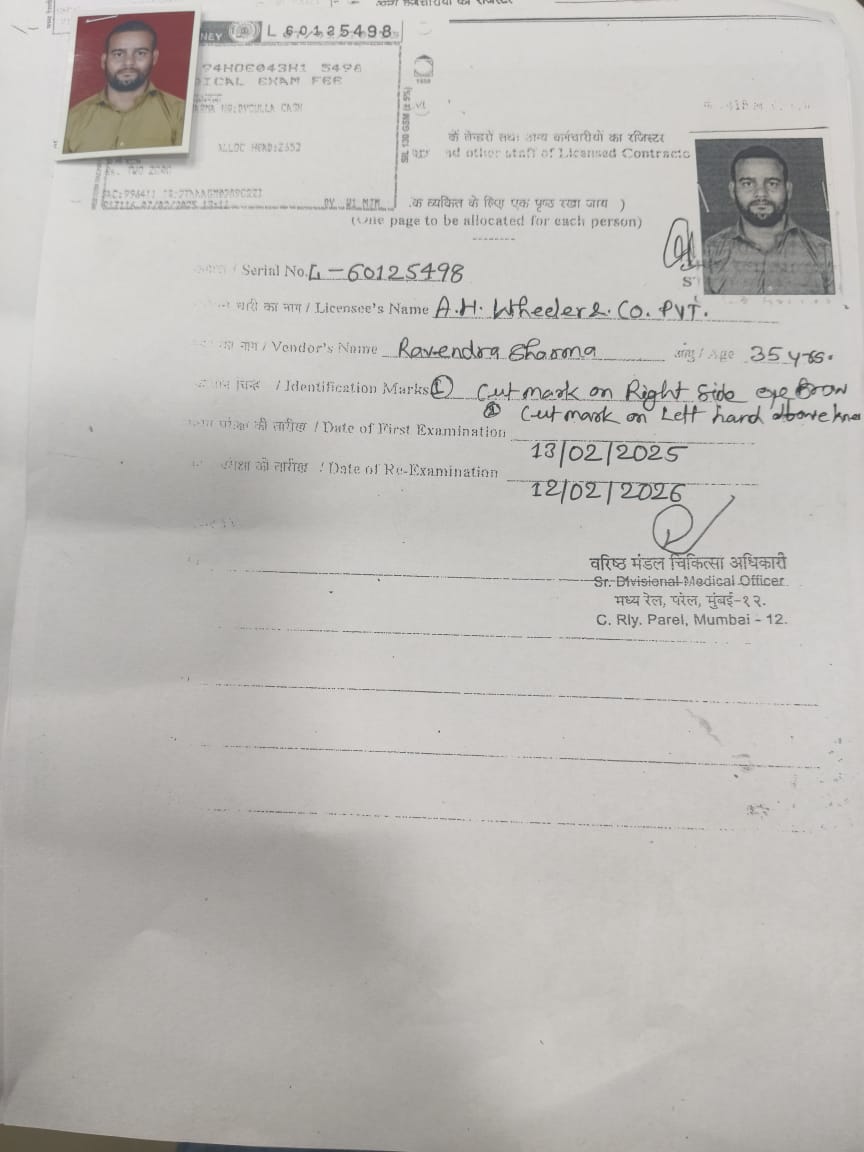 NEY L 60125498
94HOE043H1 5498
ICAL EXAM FEE
BYCULLA CASH
ALLOC HEAD:2352
SIL 130 GSM (± 5%)
के वेन्डरो तथा अन्य कर्मचारीयों का रजिस्टर
nd other staff of Licensed Contracto
क व्यक्ति के लिए एक पृष्ठ रखा जाय )
(One page to be allocated for each person)
/ Serial No. L-60125498
धारी का नाम / Licensee's Name A.H. Wheeler &. Co. PVT.
का नाम / Vendor's Name Ravendra Sharma आयु / Age 35 yrs.
चिन्ह / Identification Marks ① Cut mark on Right Side eye Brow
② Cut mark on Left hand above kne
परीक्षा की तारीख / Date of First Examination
13/02/2025
परीक्षा की तारीख / Date of Re-Examination
12/02/2026
वरिष्ठ मंडल चिकित्सा अधिकारी
Sr. Divisional Medical Officer
मध्य रेल, परेल, मुंबई-१२.
C. Rly. Parel, Mumbai - 12.